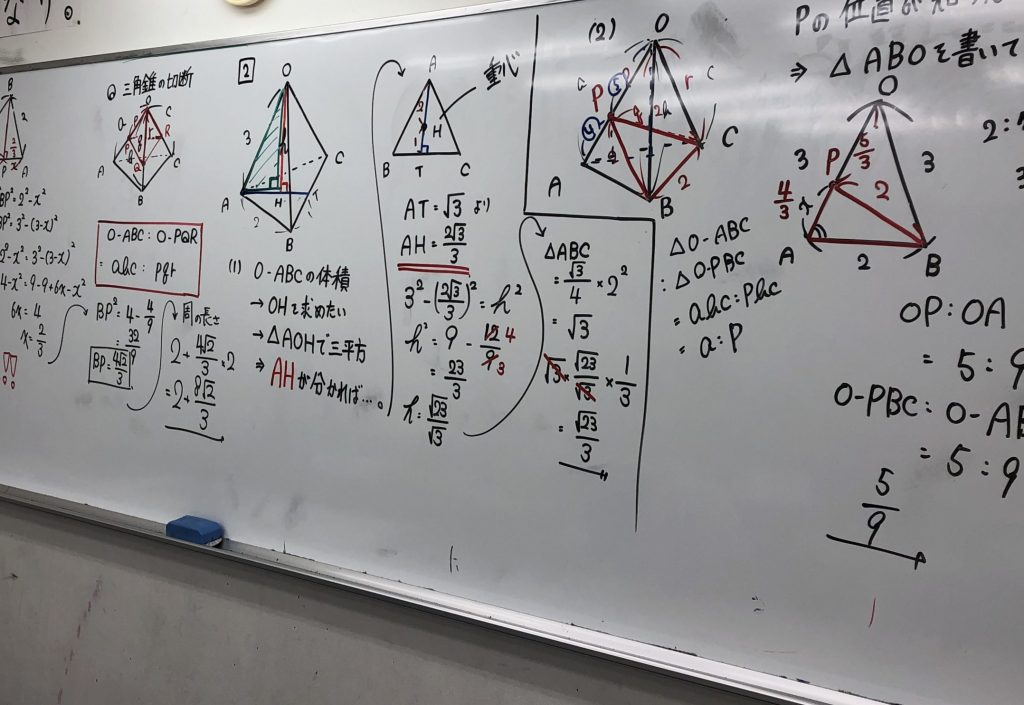 なり。
B
2
P
A
BP²=2²-x²
BP²=3²-(3-x)²
2²-x²=3²-(3-x)²
4-x²=9-9+6x-x²
6x=4
x=2/3
!!
三角錐の切断
O
A
B
C
P
Q
R
O-ABC:O-PQR
=abc:pqr
BP²=4-4/9
=32/9
BP=4√2/3
周の長さ
2+4√2/3×2
=2+8√2/3
2
O
3
h
A
H
T
C
2
B
(1) O-ABCの体積
→OHを求めたい
→△AOHで三平方
⇒AHが分かれば…。
A
重心
2
H
1
B
T
C
AT=√3より
AH=2√3/3
3²-(2√3/3)²=h²
h²=9-12/9 4 3
=23/3
h=√23/√3
△ABC
=√3/4×2²
=√3
√3×√23/√3×1/3
=√23/3
(2)
O
a
P
5
4
r
C
C
A
B
2
△O-ABC
:△O-PBC
=abc:pbc
=a:p
Pの位置が
⇒△ABOを書いて
O
3
5/3
3
P
4/3
2
A
2
B
OP:OA
=5:9
O-PBC:O-AB
=5:9
5/9